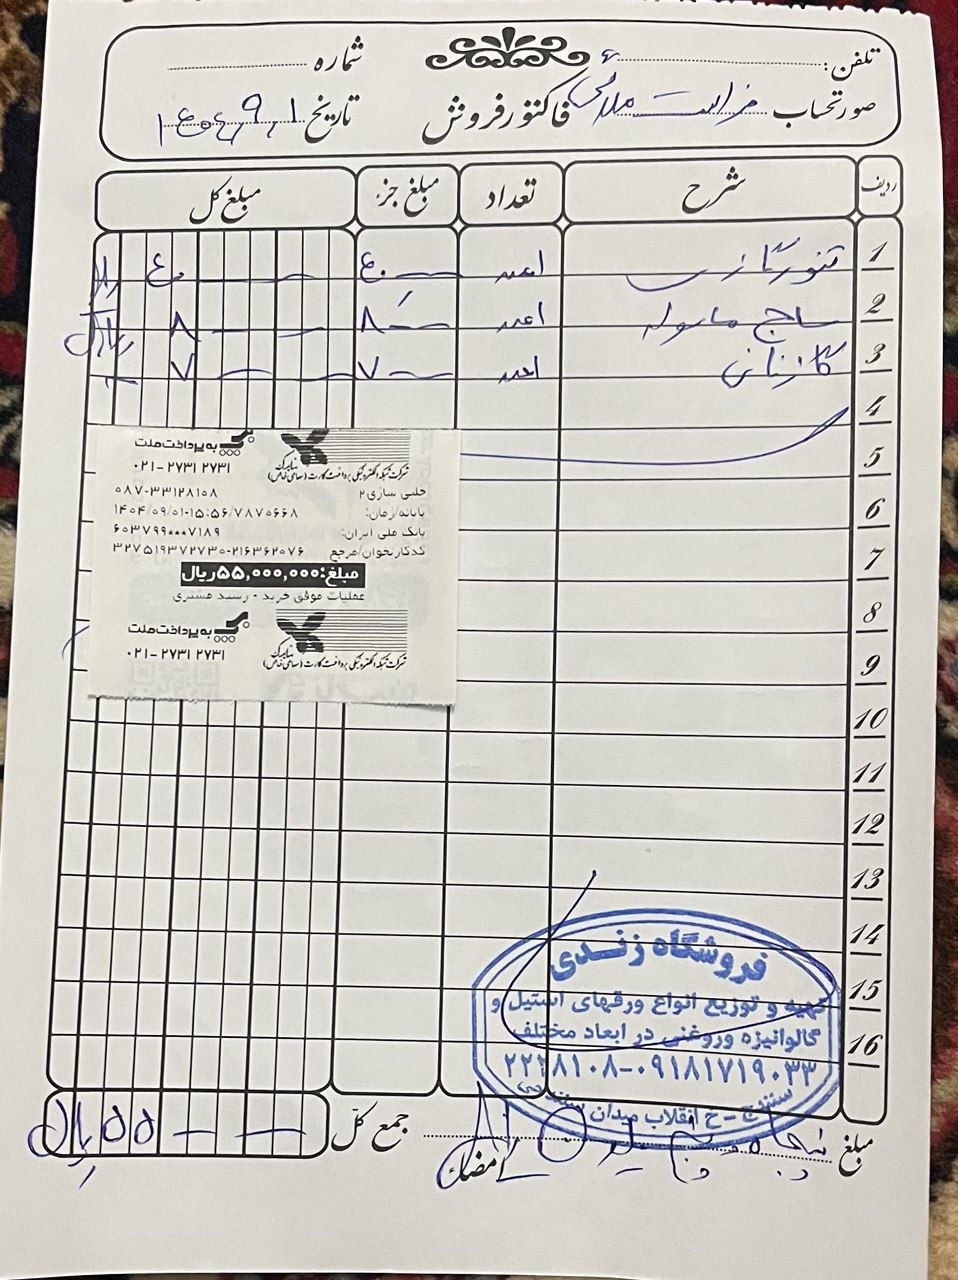 تلفن: شماره
صورتحساب فراست ملائی فاکتور فروش تاریخ ۱۴۰۴,۹,۱
ردیف شرح تعداد مبلغ جزء مبلغ کل
1 تنور گازی ۱عدد ۴۰ ۴۰ ریال
2 ساج ماسوله ۱عدد ۸ ۸ ریال
3 گاز نانی ۱عدد ۷ ۷
4
5
6
7
8
9
10
11
12
13
14
15
16
به پرداخت ملت
۰۲۱-۲۷۳۱ ۲۷۳۱
شرکت شبکه الکترونیکی پرداخت کارت (سهامی خاص)
حلبی سازی۲ ۰۸۷-۳۳۱۲۸۱۰۸
پایانه/زمان: ۱۴۰۴/۰۹/۰۱-۱۵:۵۶/۷۸۷۰۶۶۸
بانک ملی ایران: ۶۰۳۷۹۹***۷۱۸۹
کدکارتخوان/مرجع ۳۲۷۵۱۹۳۷۲۷۳۰-۲۱۶۳۶۲۰۷۶
مبلغ:۵۵,۰۰۰,۰۰۰ریال
عملیات موفق خرید - رسید مشتری
به پرداخت ملت
۰۲۱-۲۷۳۱ ۲۷۳۱
شرکت شبکه الکترونیکی پرداخت کارت (سهامی خاص)
فروشگاه زندی
تهیه و توزیع انواع ورقهای استیل و
گالوانیزه وروغنی در ابعاد مختلف
۲۲۲۸۱۰۸-۰۹۱۸۱۷۱۹۰۳۳
سنندج - خ انقلاب میدان
مبلغ پنجاه و پنج میلیون ریال جمع کل ۵۵ ریال
امضاء